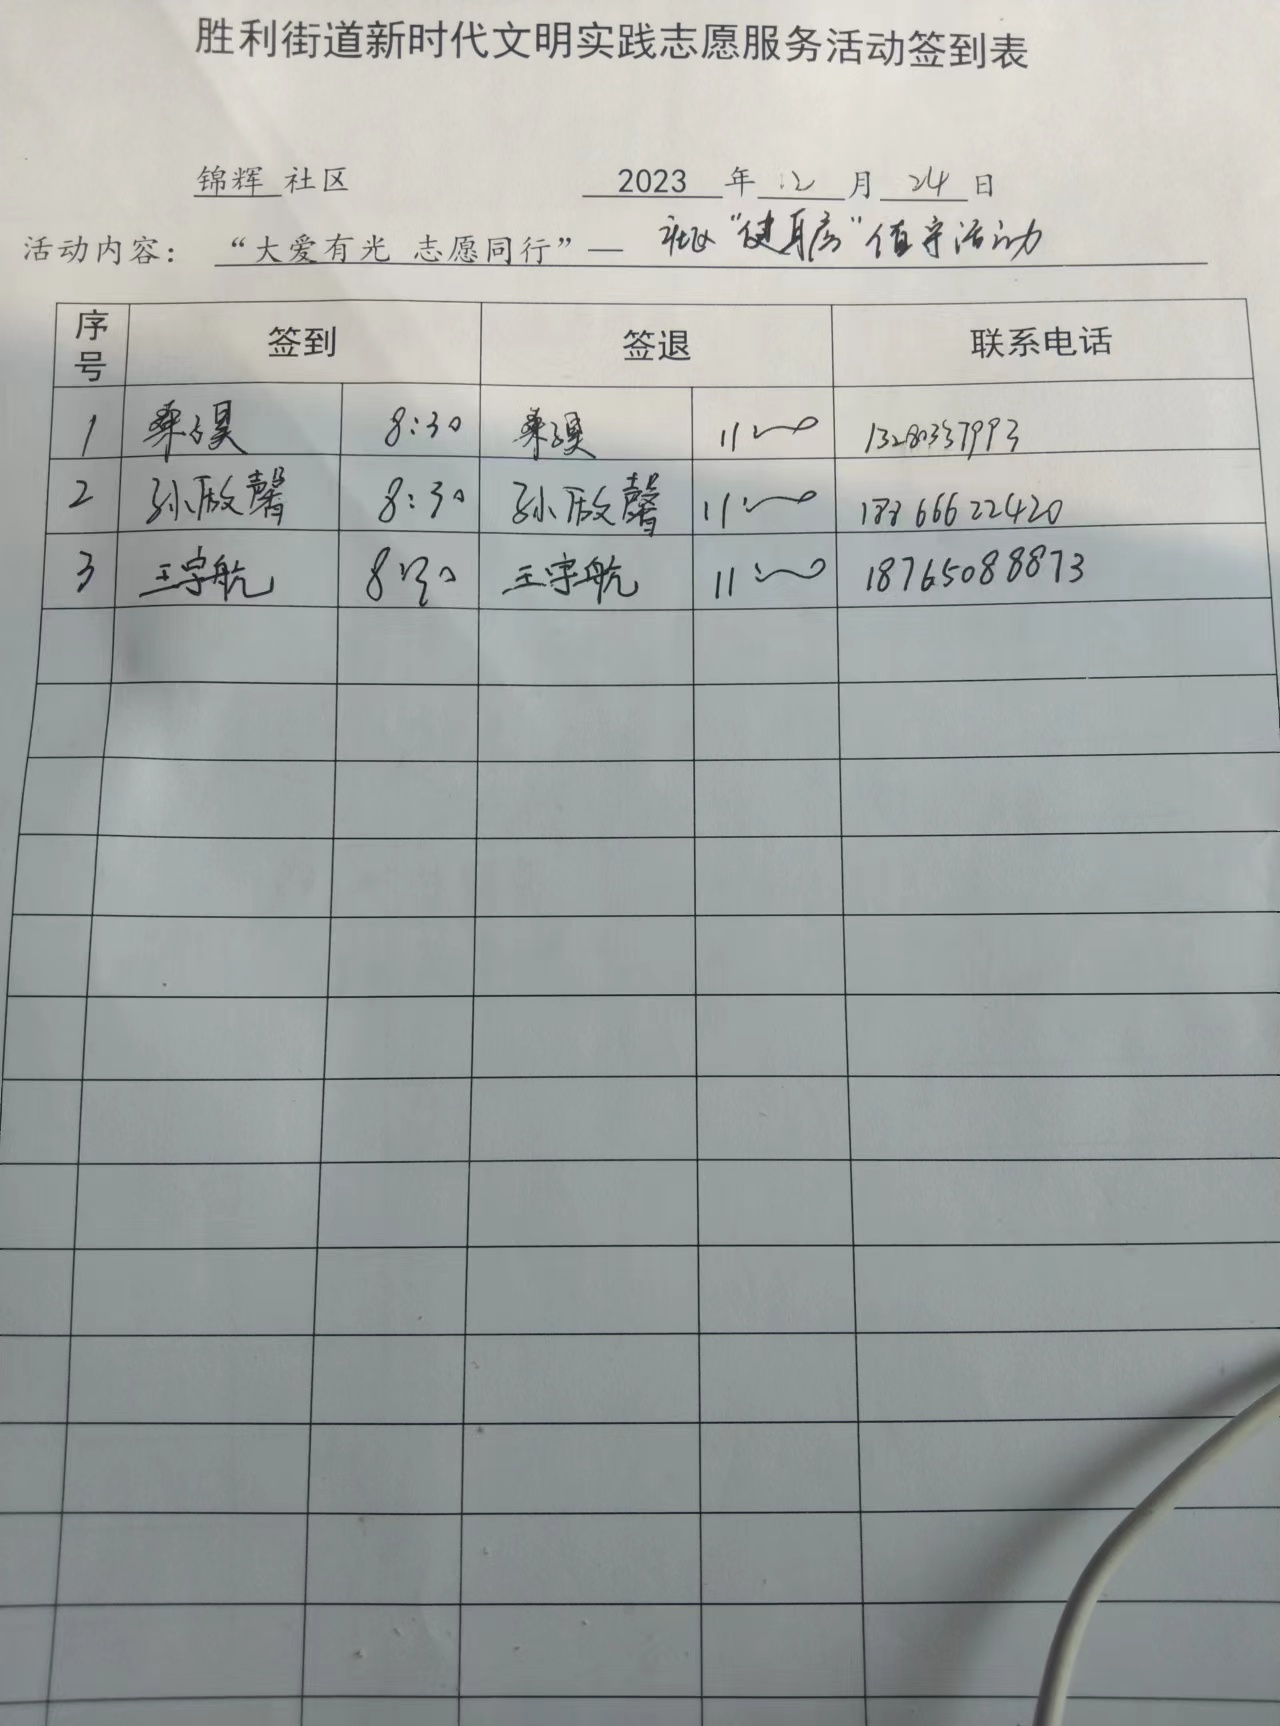 胜利街道新时代文明实践志愿服务活动签到表
锦辉 社区 2023 年 12 月 24 日
活动内容： “大爱有光 志愿同行”— 社区“健身房”值守活动
序号 签到 签退 联系电话
1 8:30 11:00
2 孙馨 8:30 孙馨 11:00 18266622420
3 王宇航 8:30 王宇航 11:00 18765088873